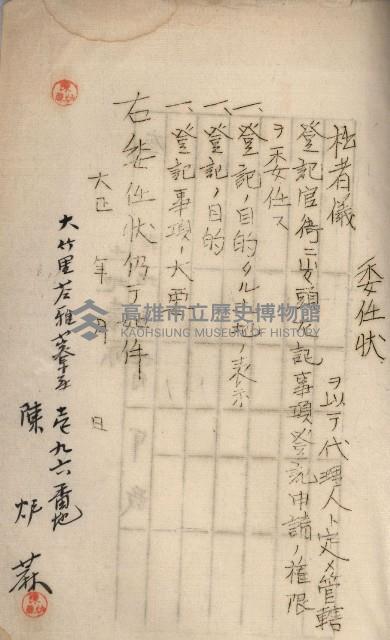 委任状
拙者儀　ヲ以テ代理人ト定メ管轄
登記官衙ニ出頭　記事項登記申請ノ権限
ヲ委任ス
一、登記ノ目的タル　表示
一、登記ノ目的
一、登記事項ノ大要
右委任状仍テ如件
大正　年　月　日
大竹里苓雅藔　壱九六番地
陳
高雄市立歷史博物館
KAOHSIUNG MUSEUM OF HISTORY